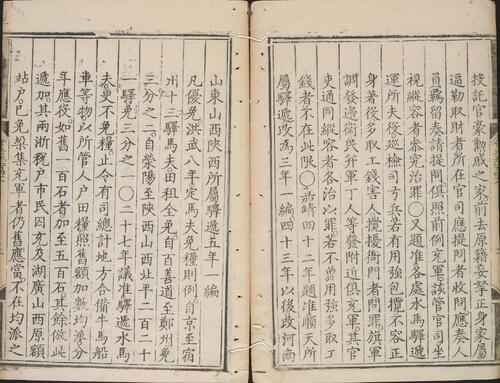 投託官豪勳戚之家前去原籍妄拏正身家屬
逼勒取財者所在官司應提問者收問應奏人
員羈留奏請提問俱照前例充軍該管官司坐
視縱容者叅究治罪○又題准各處水馬驛遞
運所夫役巡檢司弓兵若有用強包攬不容正
身著役多取工錢害人攪擾衙門者問罪旗軍
調發邊衛民并軍丁人等發附近俱充軍其官
吏通同縱容者各治以罪若不曾用強多取工
錢者不在此限○嘉靖四十二年題准順天所
屬驛遞改為三年一編四十三年以後改河南
山東山西陝西所屬驛遞五年一編
凡優免洪武八年定馬夫免糧則例自京至宿
州十三驛馬夫田租全免自百善道至鄭州免
三分之二自滎陽至陝西山西北平二百二十
一驛免三分之一○二十七年議准驛遞水馬
夫更不免糧止令有司總計地方合備牛馬船
車等物以所管人戶田糧照舊額加數均派之
年應役如舊一百石者加至五百石其餘做此
遞加其兩浙稅戶市民因充及湖廣山西原額
站戶已免梁集充軍者仍舊應當不在均派之